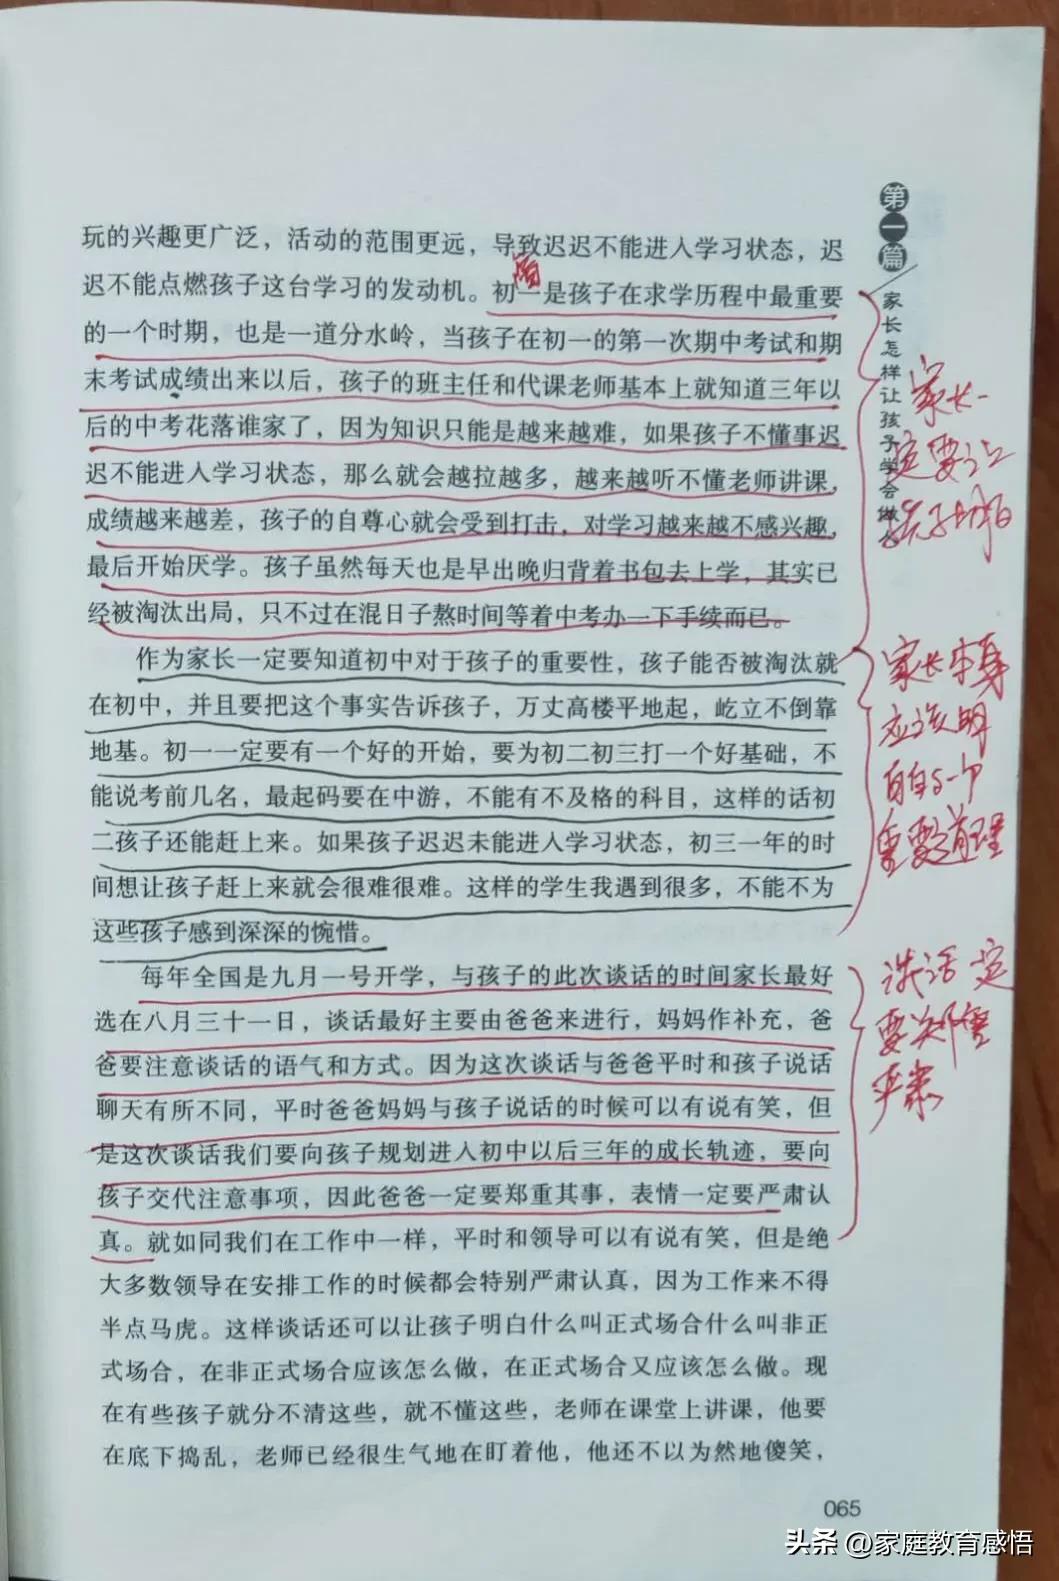 玩的兴趣更广泛，活动的范围更远，导致迟迟不能进入学习状态，迟
迟不能点燃孩子这台学习的发动机。初一是孩子在求学历程中最重要
的一个时期，也是一道分水岭，当孩子在初一的第一次期中考试和期
末考试成绩出来以后，孩子的班主任和代课老师基本上就知道三年以
后的中考花落谁家了，因为知识只能是越来越难，如果孩子不懂事迟
迟不能进入学习状态，那么就会越拉越多，越来越听不懂老师讲课，
成绩越来越差，孩子的自尊心就会受到打击，对学习越来越不感兴趣，
最后开始厌学。孩子虽然每天也是早出晚归背着书包去上学，其实已
经被淘汰出局，只不过在混日子熬时间等着中考办一下手续而已。
作为家长一定要知道初中对于孩子的重要性，孩子能否被淘汰就
在初中，并且要把这个事实告诉孩子，万丈高楼平地起，屹立不倒靠
地基。初一一定要有一个好的开始，要为初二初三打一个好基础，不
能说考前几名，最起码要在中游，不能有不及格的科目，这样的话初
二孩子还能赶上来。如果孩子迟迟未能进入学习状态，初三一年的时
间想让孩子赶上来就会很难很难。这样的学生我遇到很多，不能不为
这些孩子感到深深的惋惜。
每年全国是九月一号开学，与孩子的此次谈话的时间家长最好
选在八月三十一日，谈话最好主要由爸爸来进行，妈妈作补充，爸
爸要注意谈话的语气和方式。因为这次谈话与爸爸平时和孩子说话
聊天有所不同，平时爸爸妈妈与孩子说话的时候可以有说有笑，但
是这次谈话我们要向孩子规划进入初中以后三年的成长轨迹，要向
孩子交代注意事项，因此爸爸一定要郑重其事，表情一定要严肃认
真。就如同我们在工作中一样，平时和领导可以有说有笑，但是绝
大多数领导在安排工作的时候都会特别严肃认真，因为工作来不得
半点马虎。这样谈话还可以让孩子明白什么叫正式场合什么叫非正
式场合，在非正式场合应该怎么做，在正式场合又应该怎么做。现
在有些孩子就分不清这些，就不懂这些，老师在课堂上讲课，他要
在底下捣乱，老师已经很生气地在盯着他，他还不以为然地傻笑，
第一篇
家长怎样让孩子学会做人
家长一
定要让
孩子明白
家长本身
应该明
白自己一个
重要道理
谈话一定
要郑重
严肃
065
头条 @家庭教育感悟